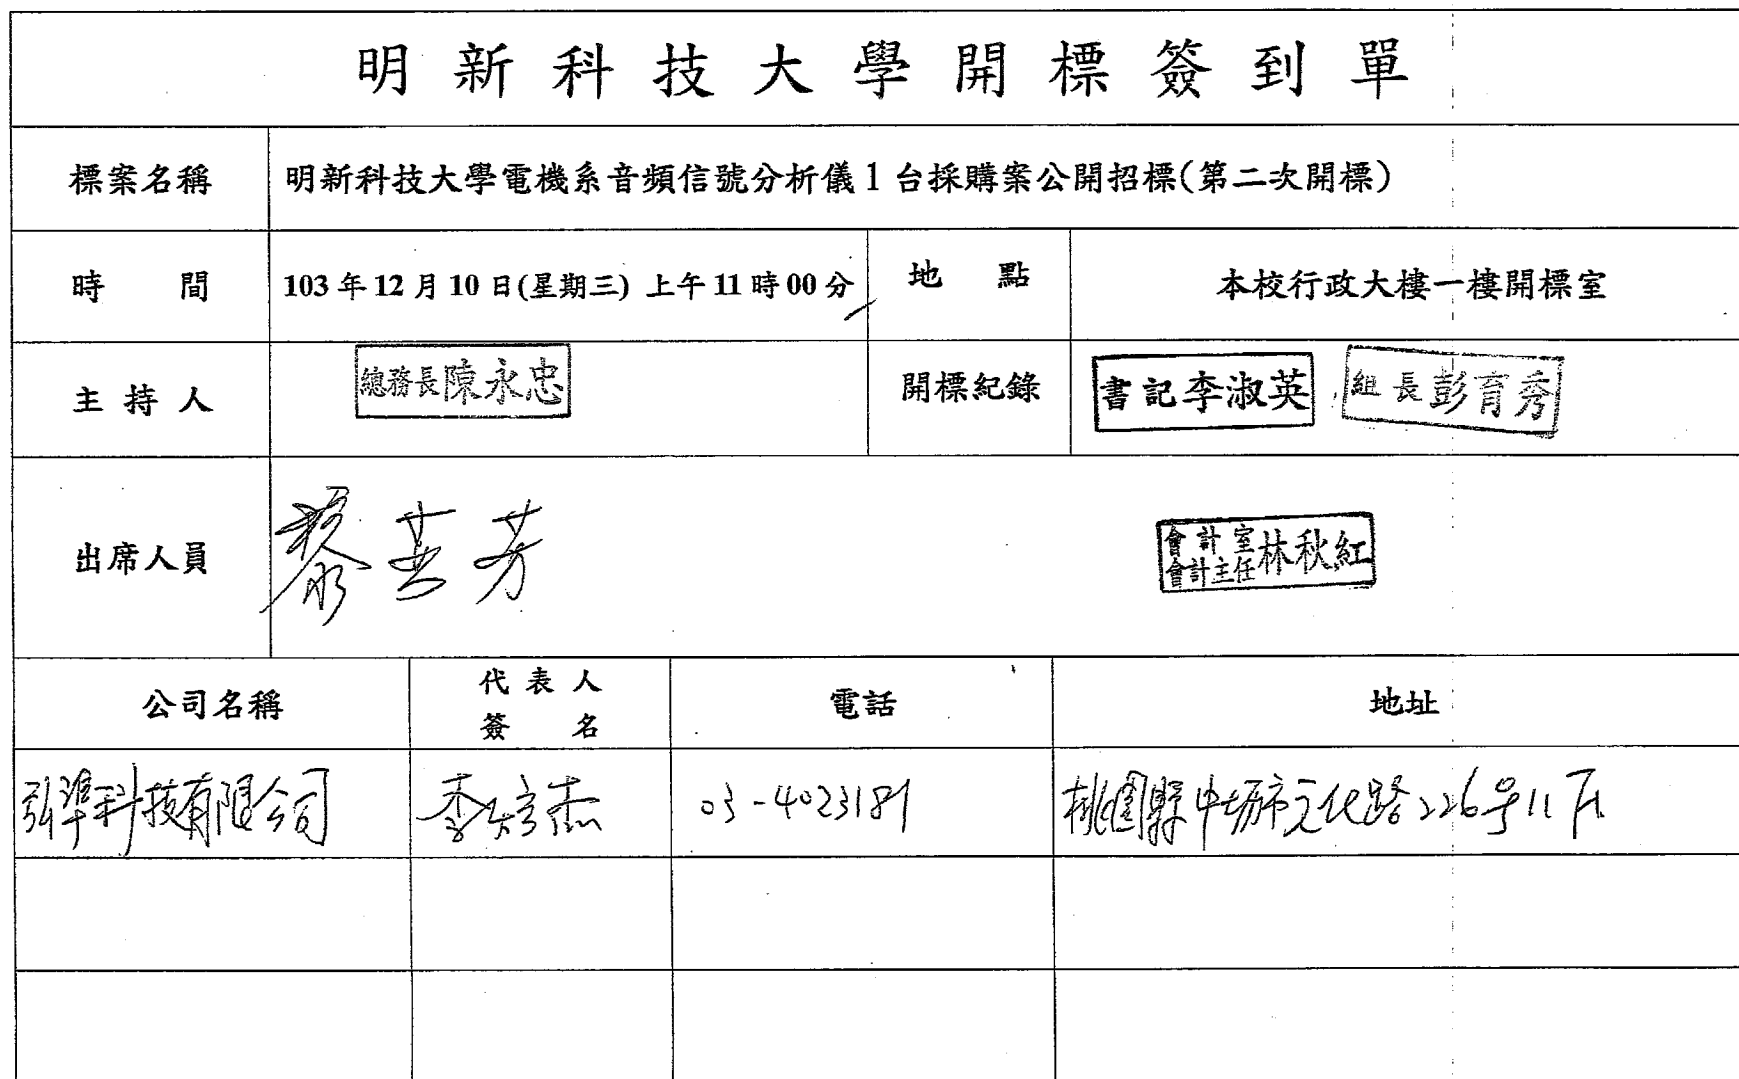 明新科技大學開標簽到單
標案名稱 明新科技大學電機系音頻信號分析儀1台採購案公開招標(第二次開標)
時間 103年12月10日(星期三) 上午11時00分 地點 本校行政大樓一樓開標室
主持人 總務長陳永忠 開標紀錄 書記李淑英 組長彭育秀
出席人員 黎英芳 會計室會計主任林秋紅
公司名稱 代表人簽名 電話 地址
弘準科技有限公司 李 杰 03-4023181 桃園縣中壢市元化路226号11F